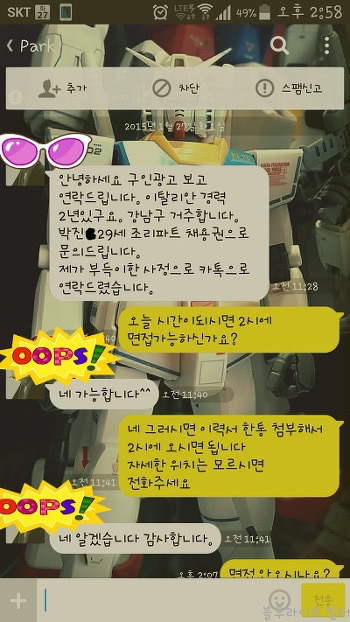 SKT 화 27 LTE 49% 오후 2:58
Park
추가 차단 스팸신고
2015년 1월 27일 화요일
안녕하세요 구인광고 보고
연락드립니다. 이탈리안 경력
2년있구요. 강남구 거주합니다.
박진 29세 조리파트 채용권으로
문의드립니다.
제가 부득이한 사정으로 카톡으로
연락드렸습니다.
오전 11:28
오늘 시간이되시면 2시에
면접가능하신가요?
OOPS!
네 가능합니다^^
오전 11:40
네 그러시면 이력서 한통 첨부해서
2시에 오시면 됩니다
자세한 위치는 모르시면
전화주세요
오전 11:41
OOPS!
네 알겠습니다 감사합니다.
오전 11:41
오후 2:07
면접 안오시나요?
전송